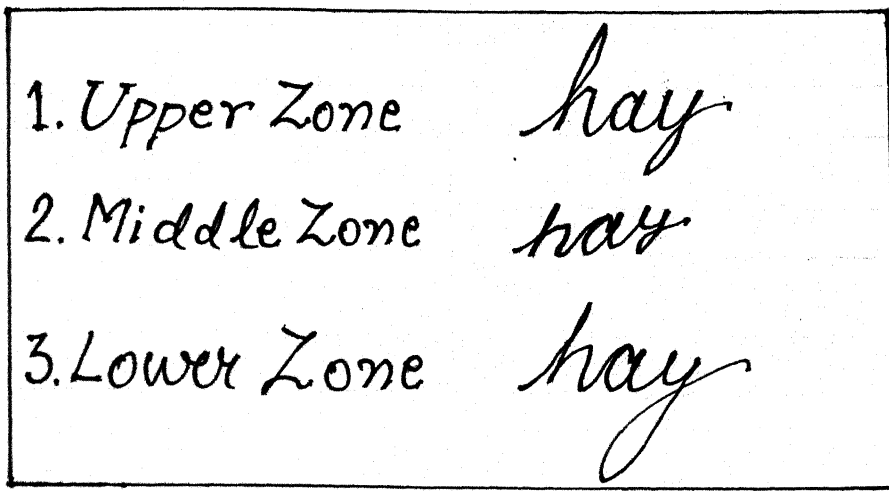 1. Upper Zone hay
2. Middle Zone hay
3. Lower Zone hay